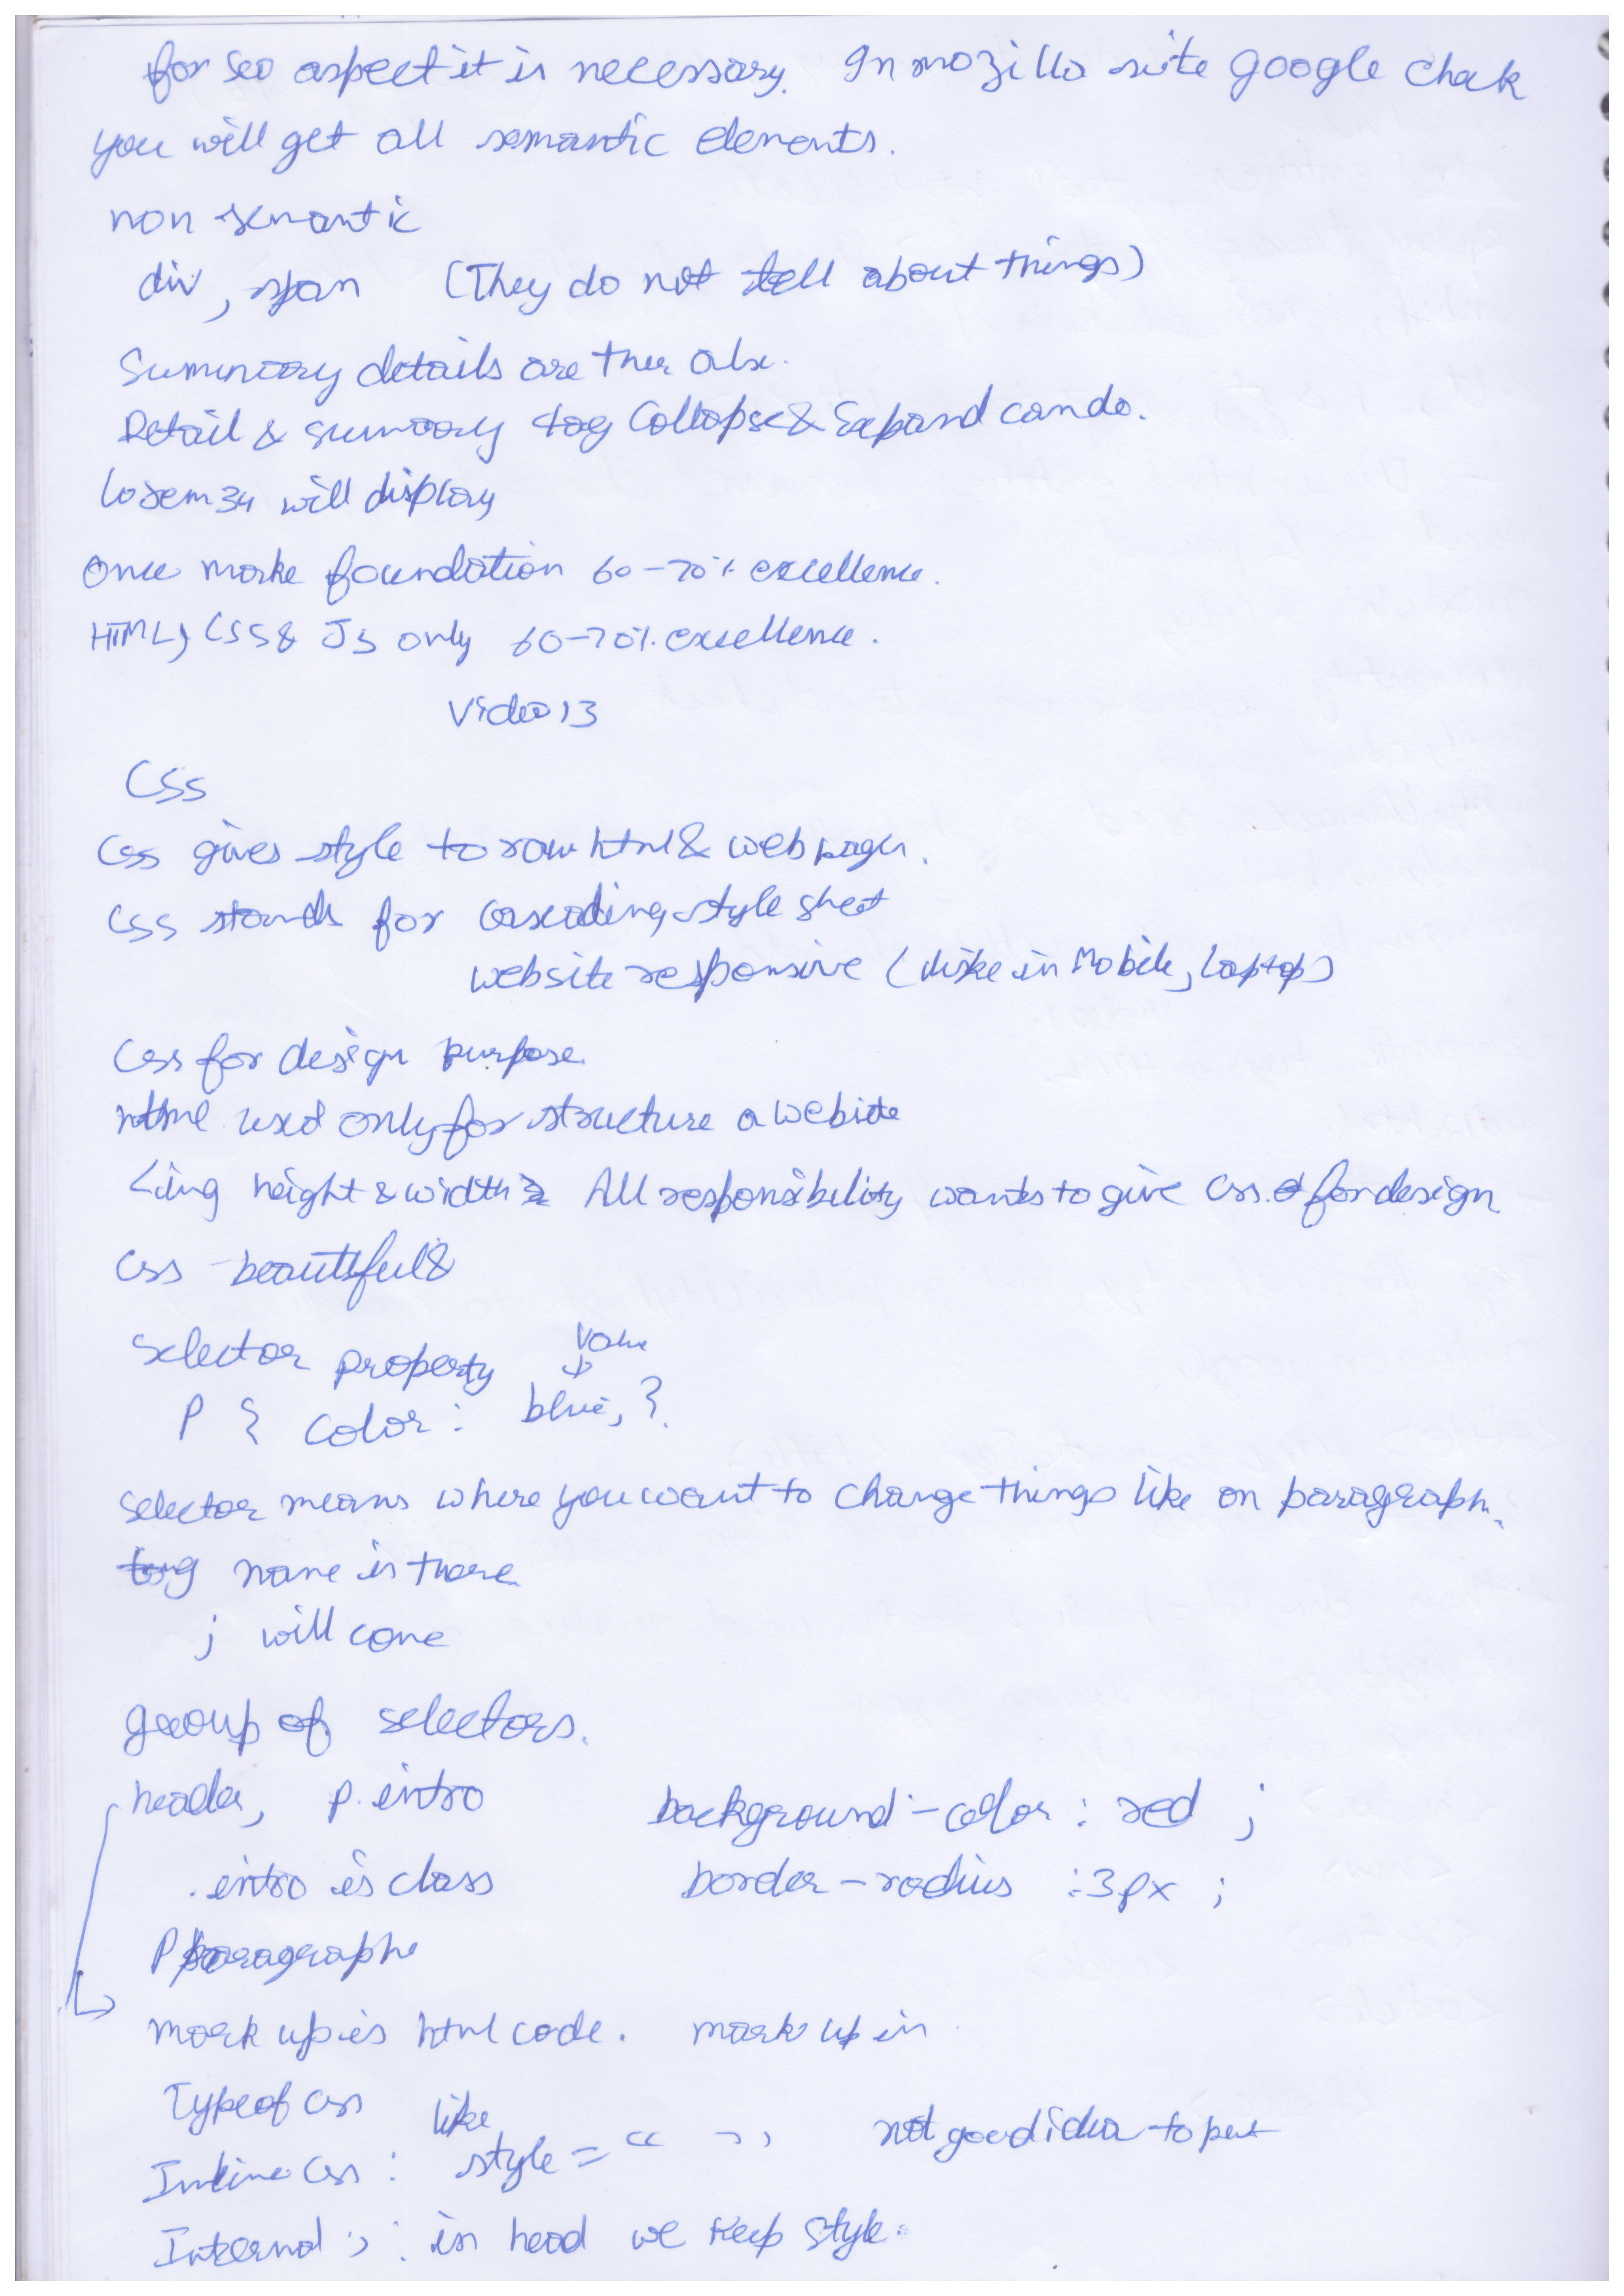 for seo aspect it is necessary. In mozilla site google check
you will get all semantic elements.
non semantic
div, span (They do not tell about things)
Summary details are ther also.
Detail & summary tag Collapse & Expand can do.
Lorem34 will display
Once make foundation 60-70% excellence.
HTML, CSS & JS only 60-70% excellence.
Video 13
CSS
Css gives style to raw html & web pages.
Css stands for cascading style sheet
website responsive (like in Mobile, laptop)
Css for design purpose
html used only for structure a webiste
height & width All responsibility wants to give css for design
Css beautiful &
Selector property value
P { color : blue; }
selector means where you want to change things like on paragraph.
tag name is there
; will come
group of selectors.
header, p.intro background-color : red ;
.intro is class border-radius : 3px ;
P paragraph
mark up is html code. mark up in
Type of css like
Inline css : style = " " not good idea to put
Internal ,, : in head we keep style.